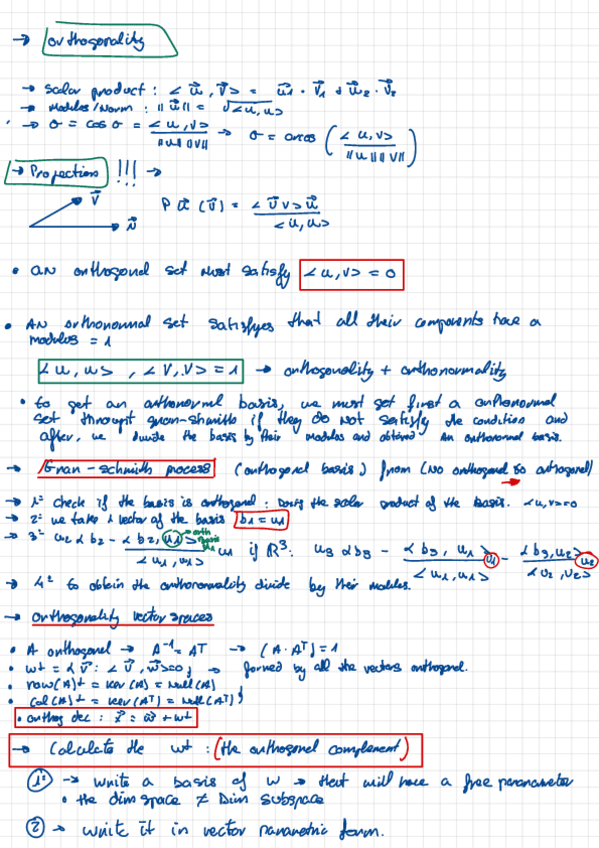 → Orthogonality
→ Scalar product : < u⃗ , v⃗ > = u⃗1 · v⃗1 + u⃗2 · v⃗2
→ Modules/Norm : ||u⃗|| = √<u,u>
→ σ = cos σ = <u,v> / ||u|| ||v|| → σ = arcos ( <u,v> / ||u|| ||v|| )
→ Projections !!! →
v⃗
P u⃗ (v⃗) = <u⃗ v> u⃗ / <u,u>
• an orthogonal set must satisfy <u,v> = 0
• AN orthonormal set satisfyes that all their components have a
modulus = 1
<u,u> , <v,v> = 1 → orthogonality + orthonormality
• to get an orthonormal basis, we must get first a orthonormal
set if they do not satisfy the condition and
after, we divide the basis by their modules and obtained An orthonormal basis.
→ Gran-schmith process (orthogonal basis) from (No orthogonal to orthogonal)
→ 1º check if the basis is orthogonal : the scalar product of the basis. <u,v>=0
→ 2º we take 1 vector of the basis b1 = u1
→ 3º u2 = b2 - <b2, u1> / <u1, u1> u1 if R³: u3 = b3 - <b3, u1> / <u1, u1> u1 - <b3, u2> / <u2, u2> u2
→ 4º to obtain the orthonormality divide by their modules.
→ orthogonality vector spaces
• A orthogonal → A⁻¹ = Aᵀ → (A · Aᵀ) = 1
• w⊥ = { v⃗ : < v⃗ , w⃗ > = 0 } → formed by all the vectors orthogonal.
• row(A)⊥ = Ker(A) = Null(A)
• Col(A)⊥ = Ker(Aᵀ) = Null(Aᵀ)
• orthog dec : x⃗ = w⃗ + w⊥
→ Calculate the w⊥ : (the orthogonal complement)
1º → write a basis of w → that will have a free parameter
• the dim space ≠ Dim subspace
2 → write it in vector parametric form.